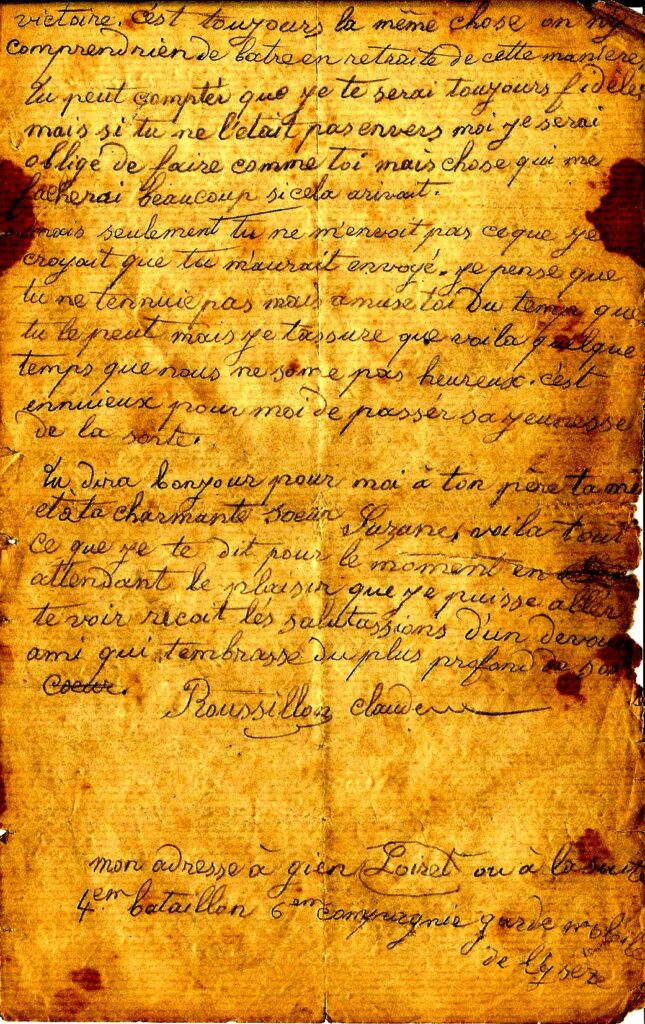 victoire. c'est toujours la même chose on ny
comprendrien de batre en retraite de cette maniere,
Tu peut compter que je te serai toujours fidele,
mais si tu ne l'etait pas envers moi je serai
obligé de faire comme toi mais chose qui me
facherai beaucoup si cela arivait.
mais seulement tu ne m'envoit pas ce que je
croyait que tu m'aurait envoyé. je pense que
tu ne tennuie pas mais amuse toi du temp que
tu le peut mais je tassure que voila quelque
temps que nous ne some pas heureux. c'est
ennuieux pour moi de passér sa jeunesse
de la sorte.
Tu dira bonjour pour moi à ton père ta mè
et à ta charmante soeur Suzane, voila tout
ce que je te dit pour le moment en
attendant le plaisir que je puisse aller
te voir recoit les salutassions d'un devoué
ami qui tembrasse du plus profond de son
coeur.
Roussillon claude
mon adresse à gien Loiret ou à la suite
4em bataillon 6em compagnie garde mobile
de l'Ysère